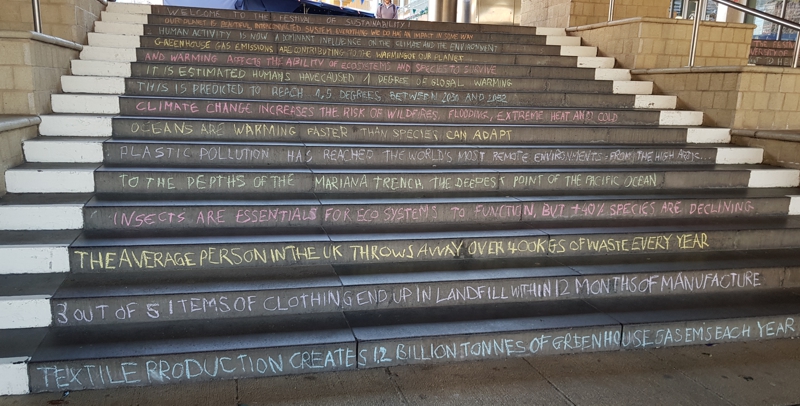 WELCOME TO THE FESTIVAL OF SUSTAINABILITY
OUR PLANET IS A SYSTEM EVERYTHING WE DO HAS AN IMPACT IN SOME WAY
HUMAN ACTIVITY IS NOW A DOMINANT INFLUENCE ON THE CLIMATE AND THE ENVIRONMENT
GREENHOUSE GAS EMISSIONS ARE CONTRIBUTING TO THE WARMING OF OUR PLANET
AND WARMING AFFECTS THE ABILITY OF ECOSYSTEMS AND SPECIES TO SURVIVE
IT IS ESTIMATED HUMANS HAVE CAUSED 1 DEGREE OF GLOBAL WARMING
THIS IS PREDICTED TO REACH 1,5 DEGREES, BETWEEN 2030 AND
CLIMATE CHANGE INCREASES THE RISK OF WILDFIRES, FLOODING, EXTREME HEAT AND COLD
OCEANS ARE WARMING FASTER THAN SPECIES CAN ADAPT
PLASTIC POLLUTION HAS REACHED THE WORLDS MOST REMOTE ENVIRONMENTS - FROM THE HIGH ARCTIC
TO THE DEPTHS OF THE MARIANA TRENCH, THE DEEPEST POINT OF THE PACIFIC OCEAN
INSECTS ARE ESSENTIALS FOR ECO SYSTEMS TO FUNCTION, BUT +40% SPECIES ARE DECLINING
THE AVERAGE PERSON IN THE UK THROWS AWAY OVER 400KGS OF WASTE EVERY YEAR
3 OUT OF 5 ITEMS OF CLOTHING END UP IN LANDFILL WITHIN 12 MONTHS OF MANUFACTURE
TEXTILE PRODUCTION CREATES 1.2 BILLION TONNES OF GREENHOUSE GAS EMIS EACH YEAR